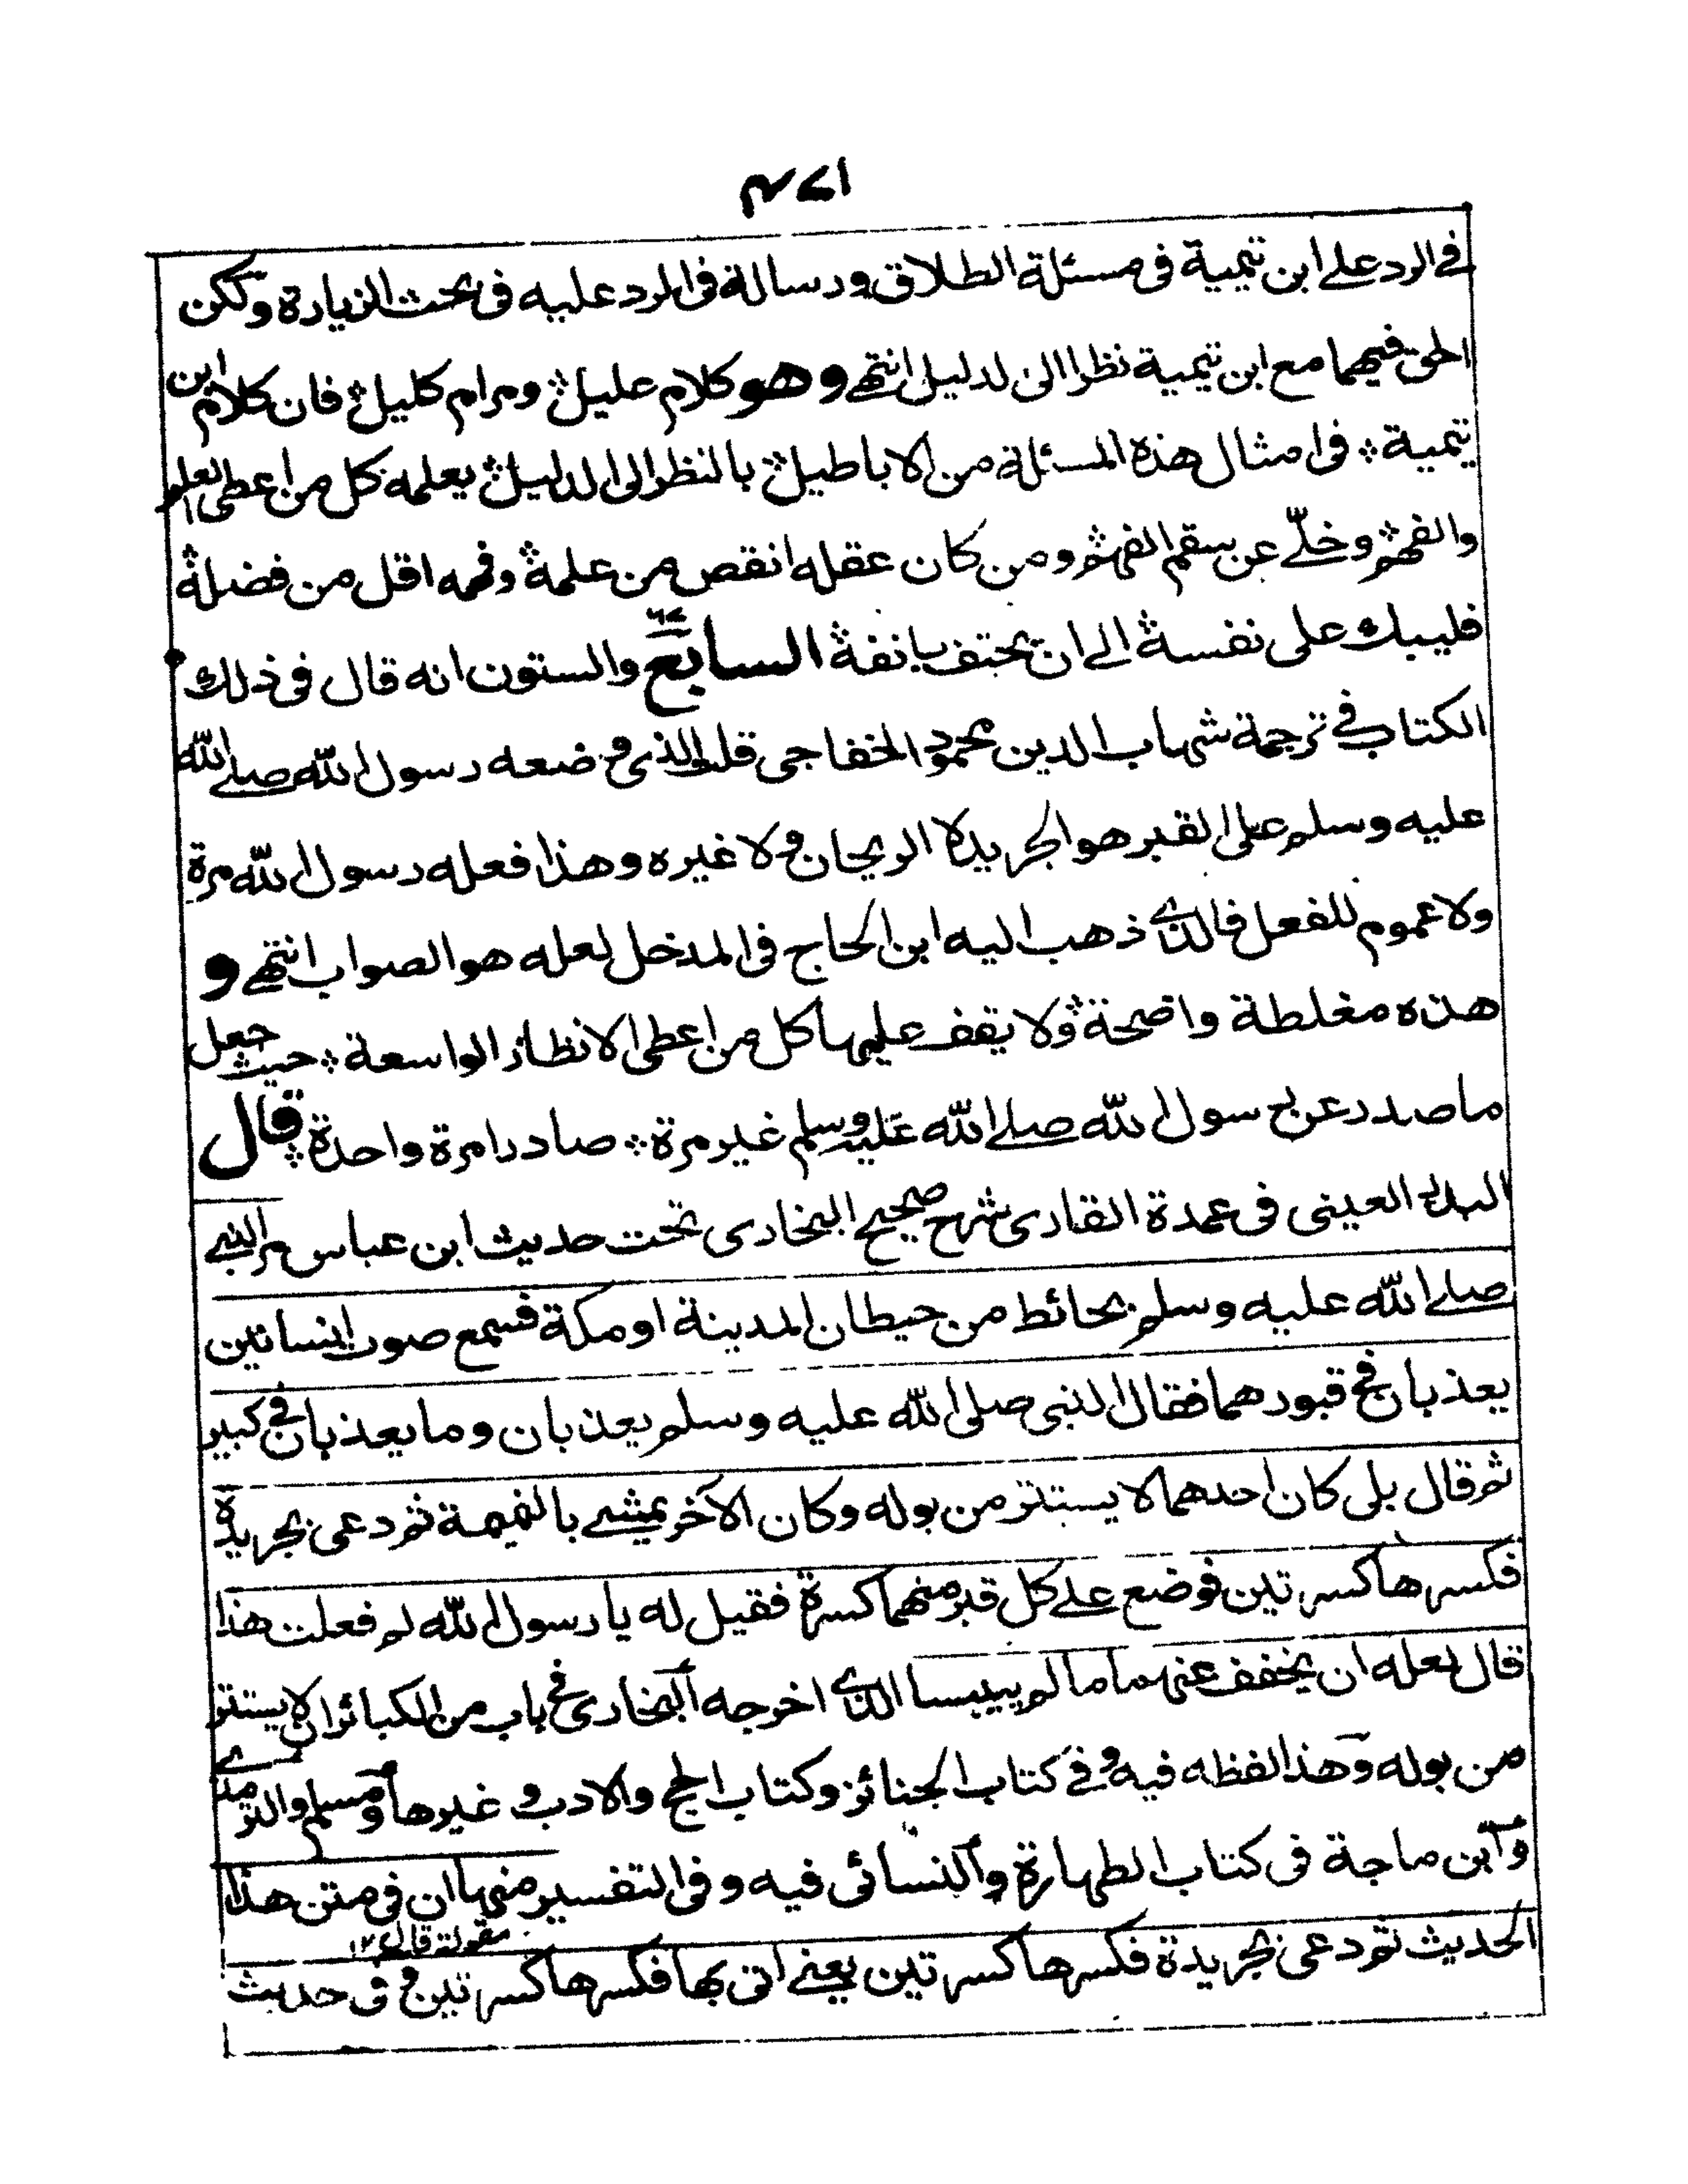 ۱۷۴
في الرد على ابن تيمية فى مسئلة الطلاق ورسالة فى الرد عليه فى بحث الزيارة ولكن
الحق فيهما مع ابن تيمية نظرا الى لدليل انتهى وهو كلام عليل ومرام كليل فان كلام ابن
تيمية فى امثال هذه المسئلة من الاباطيل بالنظر الى الدليل يعلمه كل من اعطى العلم
والفهم وخلّے عن سقم الفهم ومن كان عقله انقص من علمه وفهمه اقل من فضله
فليبك على نفسه الے ان يحتف بانفه السابع والستون انه قال فى ذلك
الكتاب في ترجمة شهاب الدين محمود الخفاجى قلت الذى وضعه رسول الله صلے الله
عليه وسلم على القبر هو الجريد لا الريحان ولا غيره وهذا فعله رسول الله مرة
ولا عموم للفعل فالذے ذهب اليه ابن الحاج فى المدخل لعله هو الصواب انتهے و
هذه مغلطة واضحة ولا يقف عليها كل من اعطى الانظار الواسعة حيث جعل
ما صدر عن رسول الله صلے الله عليه وسلم غير مرة صادرا مرة واحدة قال
البدر العينى فى عمدة القارى شرح صحيح البخارى تحت حديث ابن عباس مر النبے
صلے الله عليه وسلم بحائط من حيطان المدينة او مكة فسمع صوت انسانين
يعذبان في قبورهما فقال النبى صلى الله عليه وسلم يعذبان وما يعذبان في كبير
ثم قال بلى كان احدهما لا يستتر من بوله وكان الآخر يمشے بالنميمة ثم دعى بجريدة
فكسرها كسرتين فوضع علے كل قبر منهما كسرة فقيل له يا رسول الله لم فعلت هذا
قال لعله ان يخفف عنهما ما لم ييبسا الذے اخرجه البخارى في باب من الكبائر ان لا يستتر
من بوله وهذا لفظه فيه وفي كتاب الجنائز وكتاب الحج والادب وغيرها ومسلم والترمذے
وابن ماجة فى كتاب الطهارة والنسائى فيه وفى التفسير منها ان فى متن هذا
مقولة قال ۱۲
الحديث ثم دعى بجريدة فكسرها كسرتين يعنے اتى بها فكسرها كسرتين وفى حديث